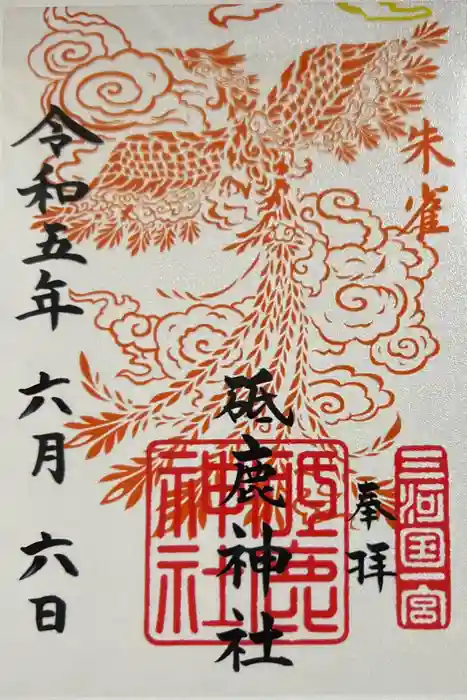 朱雀
三河国一宮
奉拝
砥鹿神社
砥鹿神社
令和五年 六月 六日